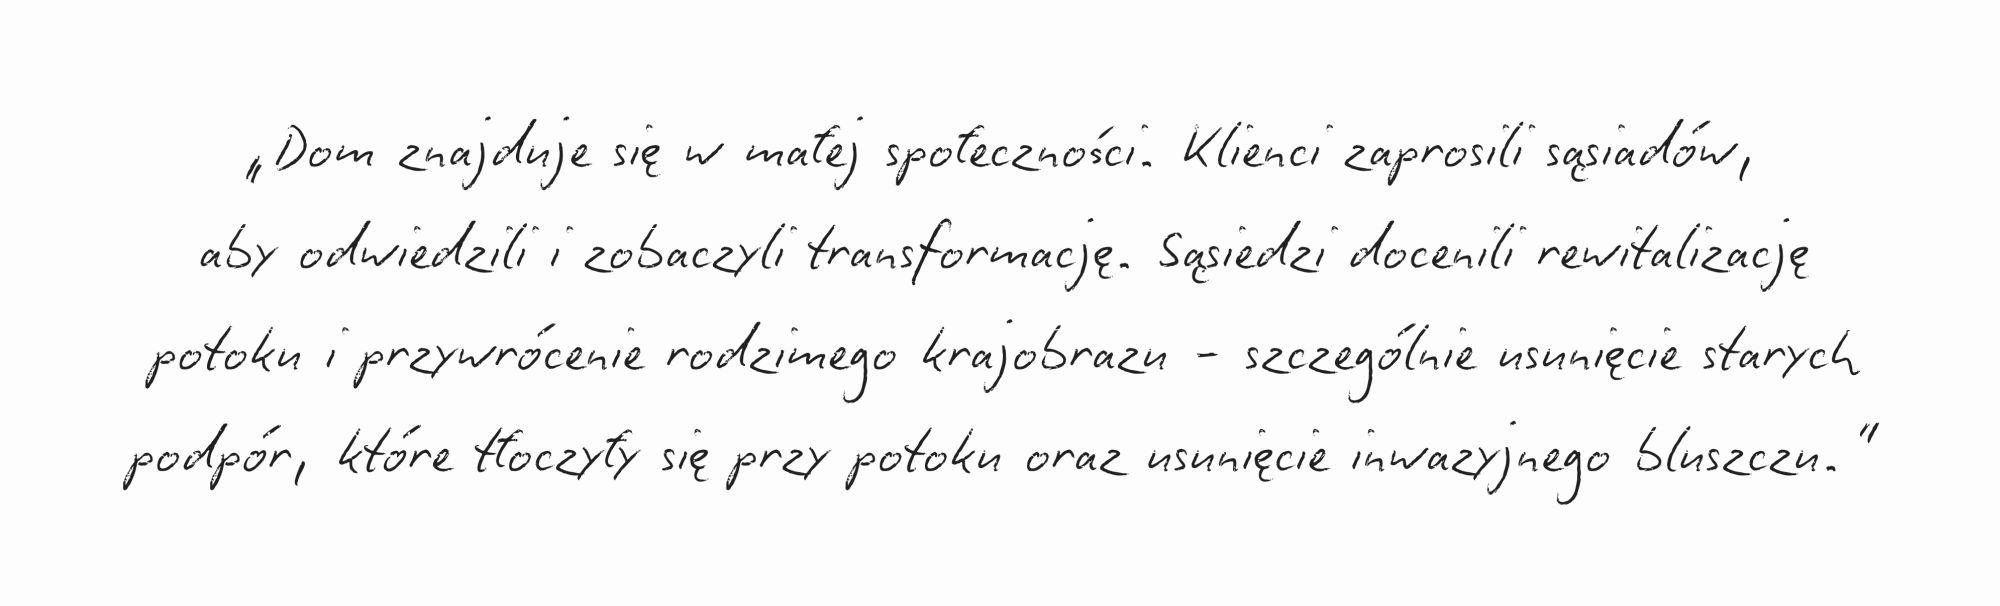 „Dom znajduje się w małej społeczności. Klienci zaprosili sąsiadów,
aby odwiedzili i zobaczyli transformację. Sąsiedzi docenili rewitalizację
potoku i przywrócenie rodzimego krajobrazu – szczególnie usunięcie starych
podpór, które tłoczyły się przy potoku oraz usunięcie inwazyjnego bluszczu.”